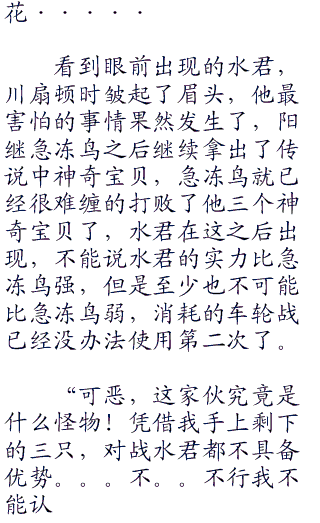 花·····
看到眼前出现的水君，
川扇顿时皱起了眉头，他最
害怕的事情果然发生了，阳
继急冻鸟之后继续拿出了传
说中神奇宝贝，急冻鸟就已
经很难缠的打败了他三个神
奇宝贝了，水君在这之后出
现，不能说水君的实力比急
冻鸟强，但是至少也不可能
比急冻鸟弱，消耗的车轮战
已经没办法使用第二次了。
“可恶，这家伙究竟是
什么怪物！凭借我手上剩下
的三只，对战水君都不具备
优势。。。不。。不行我不
能认